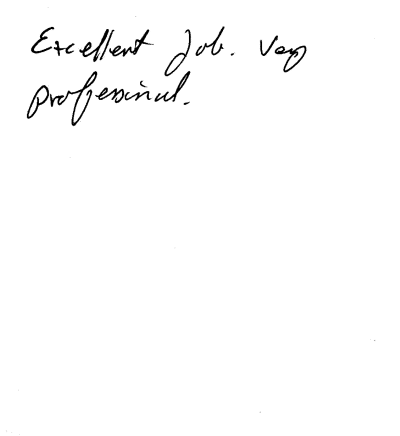 Excellent Job. Very
professional.